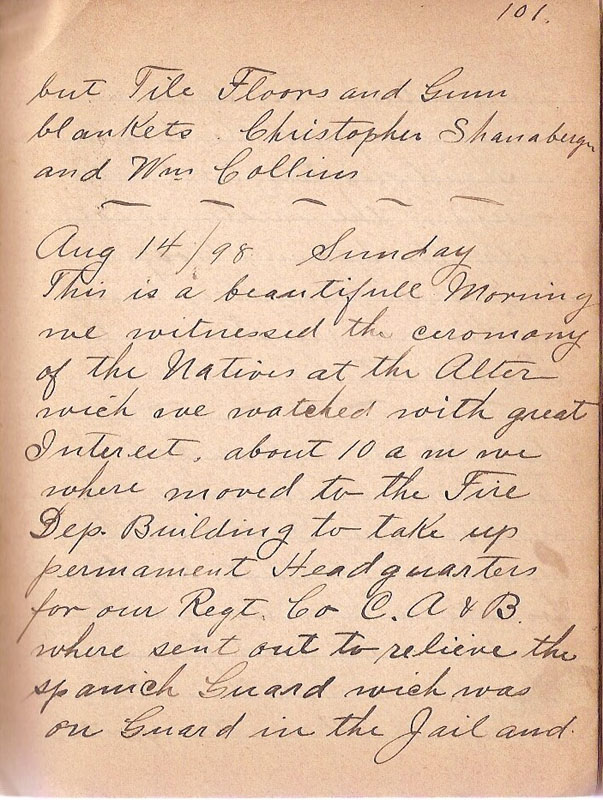 101.
but Tile Floors and Gum
blankets. Christopher Shanaberger
and Wm Collins
Aug 14/98 Sunday
This is a beautifull Morning
we witnessed the ceromony
of the Natives at the Alter
wich we watched with great
Interest. about 10 a m we
where moved to the Fire
Dep. Building to take up
permament Headquarters
for our Regt. Co C. A & B.
where sent out to relieve the
spanich Guard wich was
on Guard in the Jail and